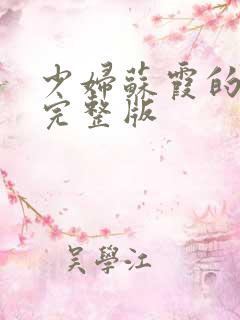 少婦蘇霞的
完整版
吳學江